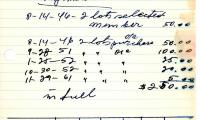 8-14-46-2 lots selected
member 50.00
o/a
8-14-46 2 lots purchase 50.00
9-28-51 " o/a 100.00
1-25-52 " " 25.00
10-30-52 " " 20.00
11-29-61 " " 5.00
$250.00
in full